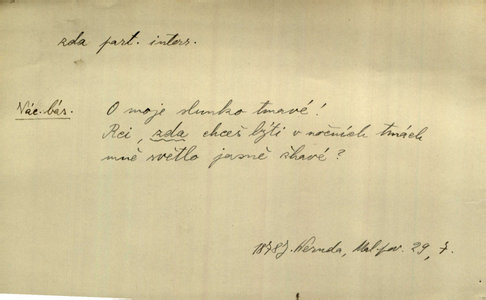 zda part. interr.
Nác. bás.
O moje slunko tmavé!
Rci, zda chceš býti v nočních tmách
mně světlo jasně žhavé?
1878 J. Neruda, Mal. pov. 29, 7.